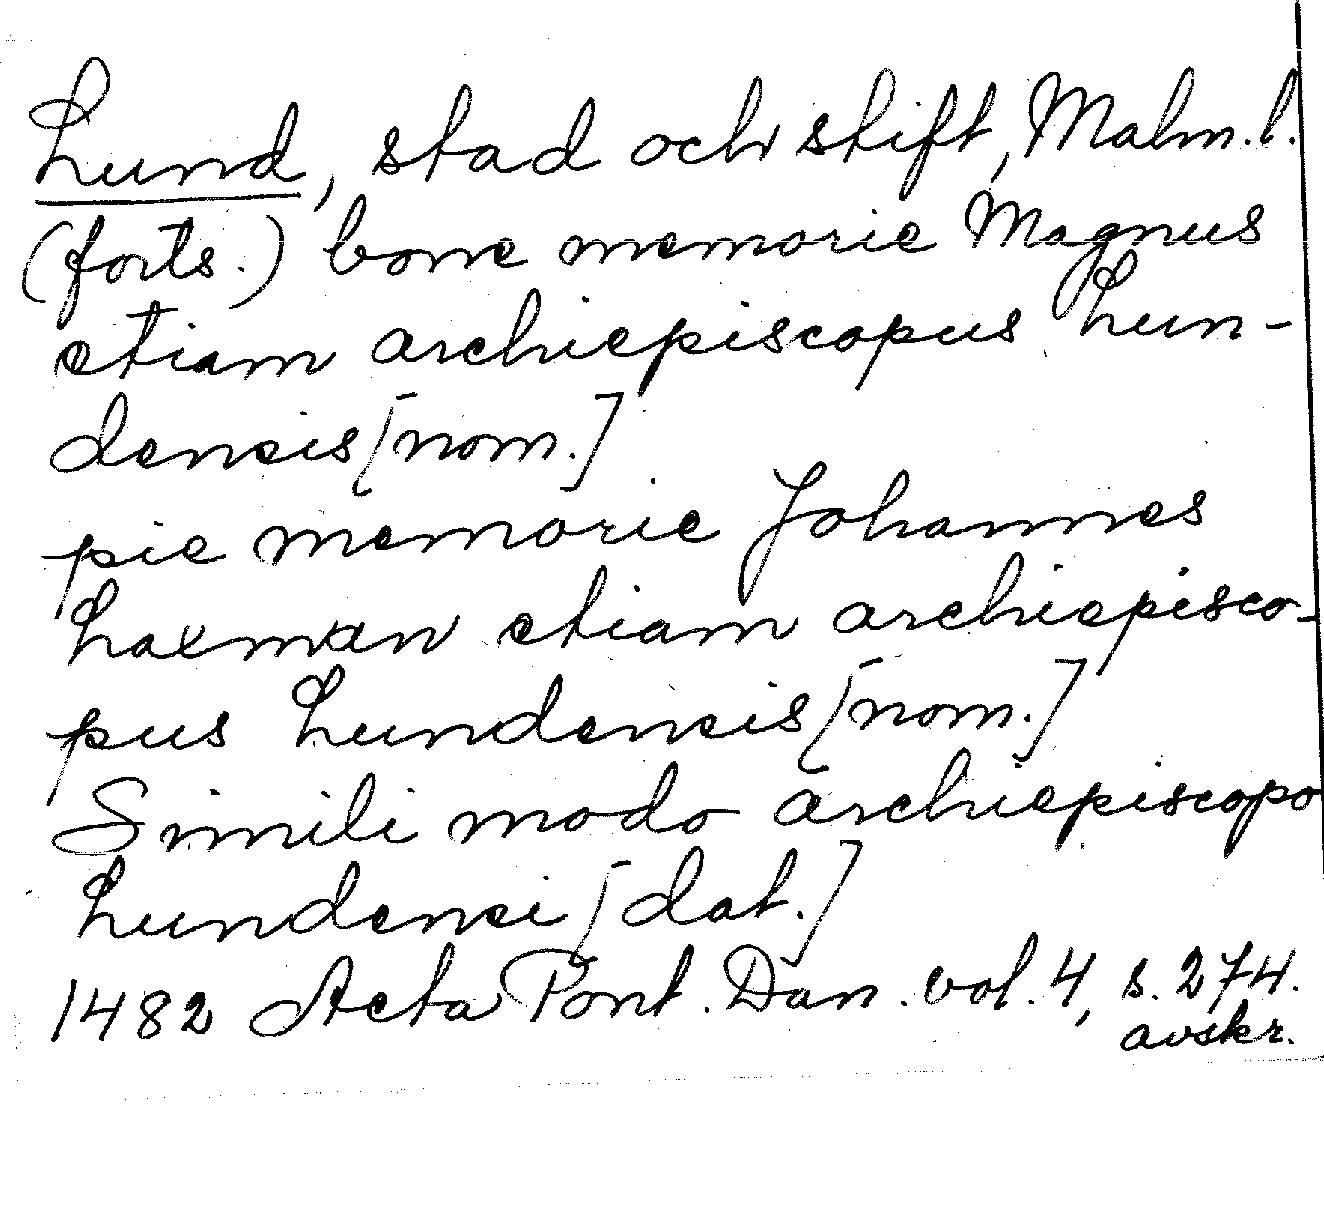 Lund, stad och stift, Malm.l.
(forts.) bone memorie Magnus
etiam archiepiscopus Lun-
densis [nom.]
pie memorie Johannes
Laxman etiam archiepisco-
pus Lundensis [nom.]
Simili modo archiepiscopo
Lundensi [dat.]
1482 Acta Pont. Dan. vol. 4, s. 274.
avskr.